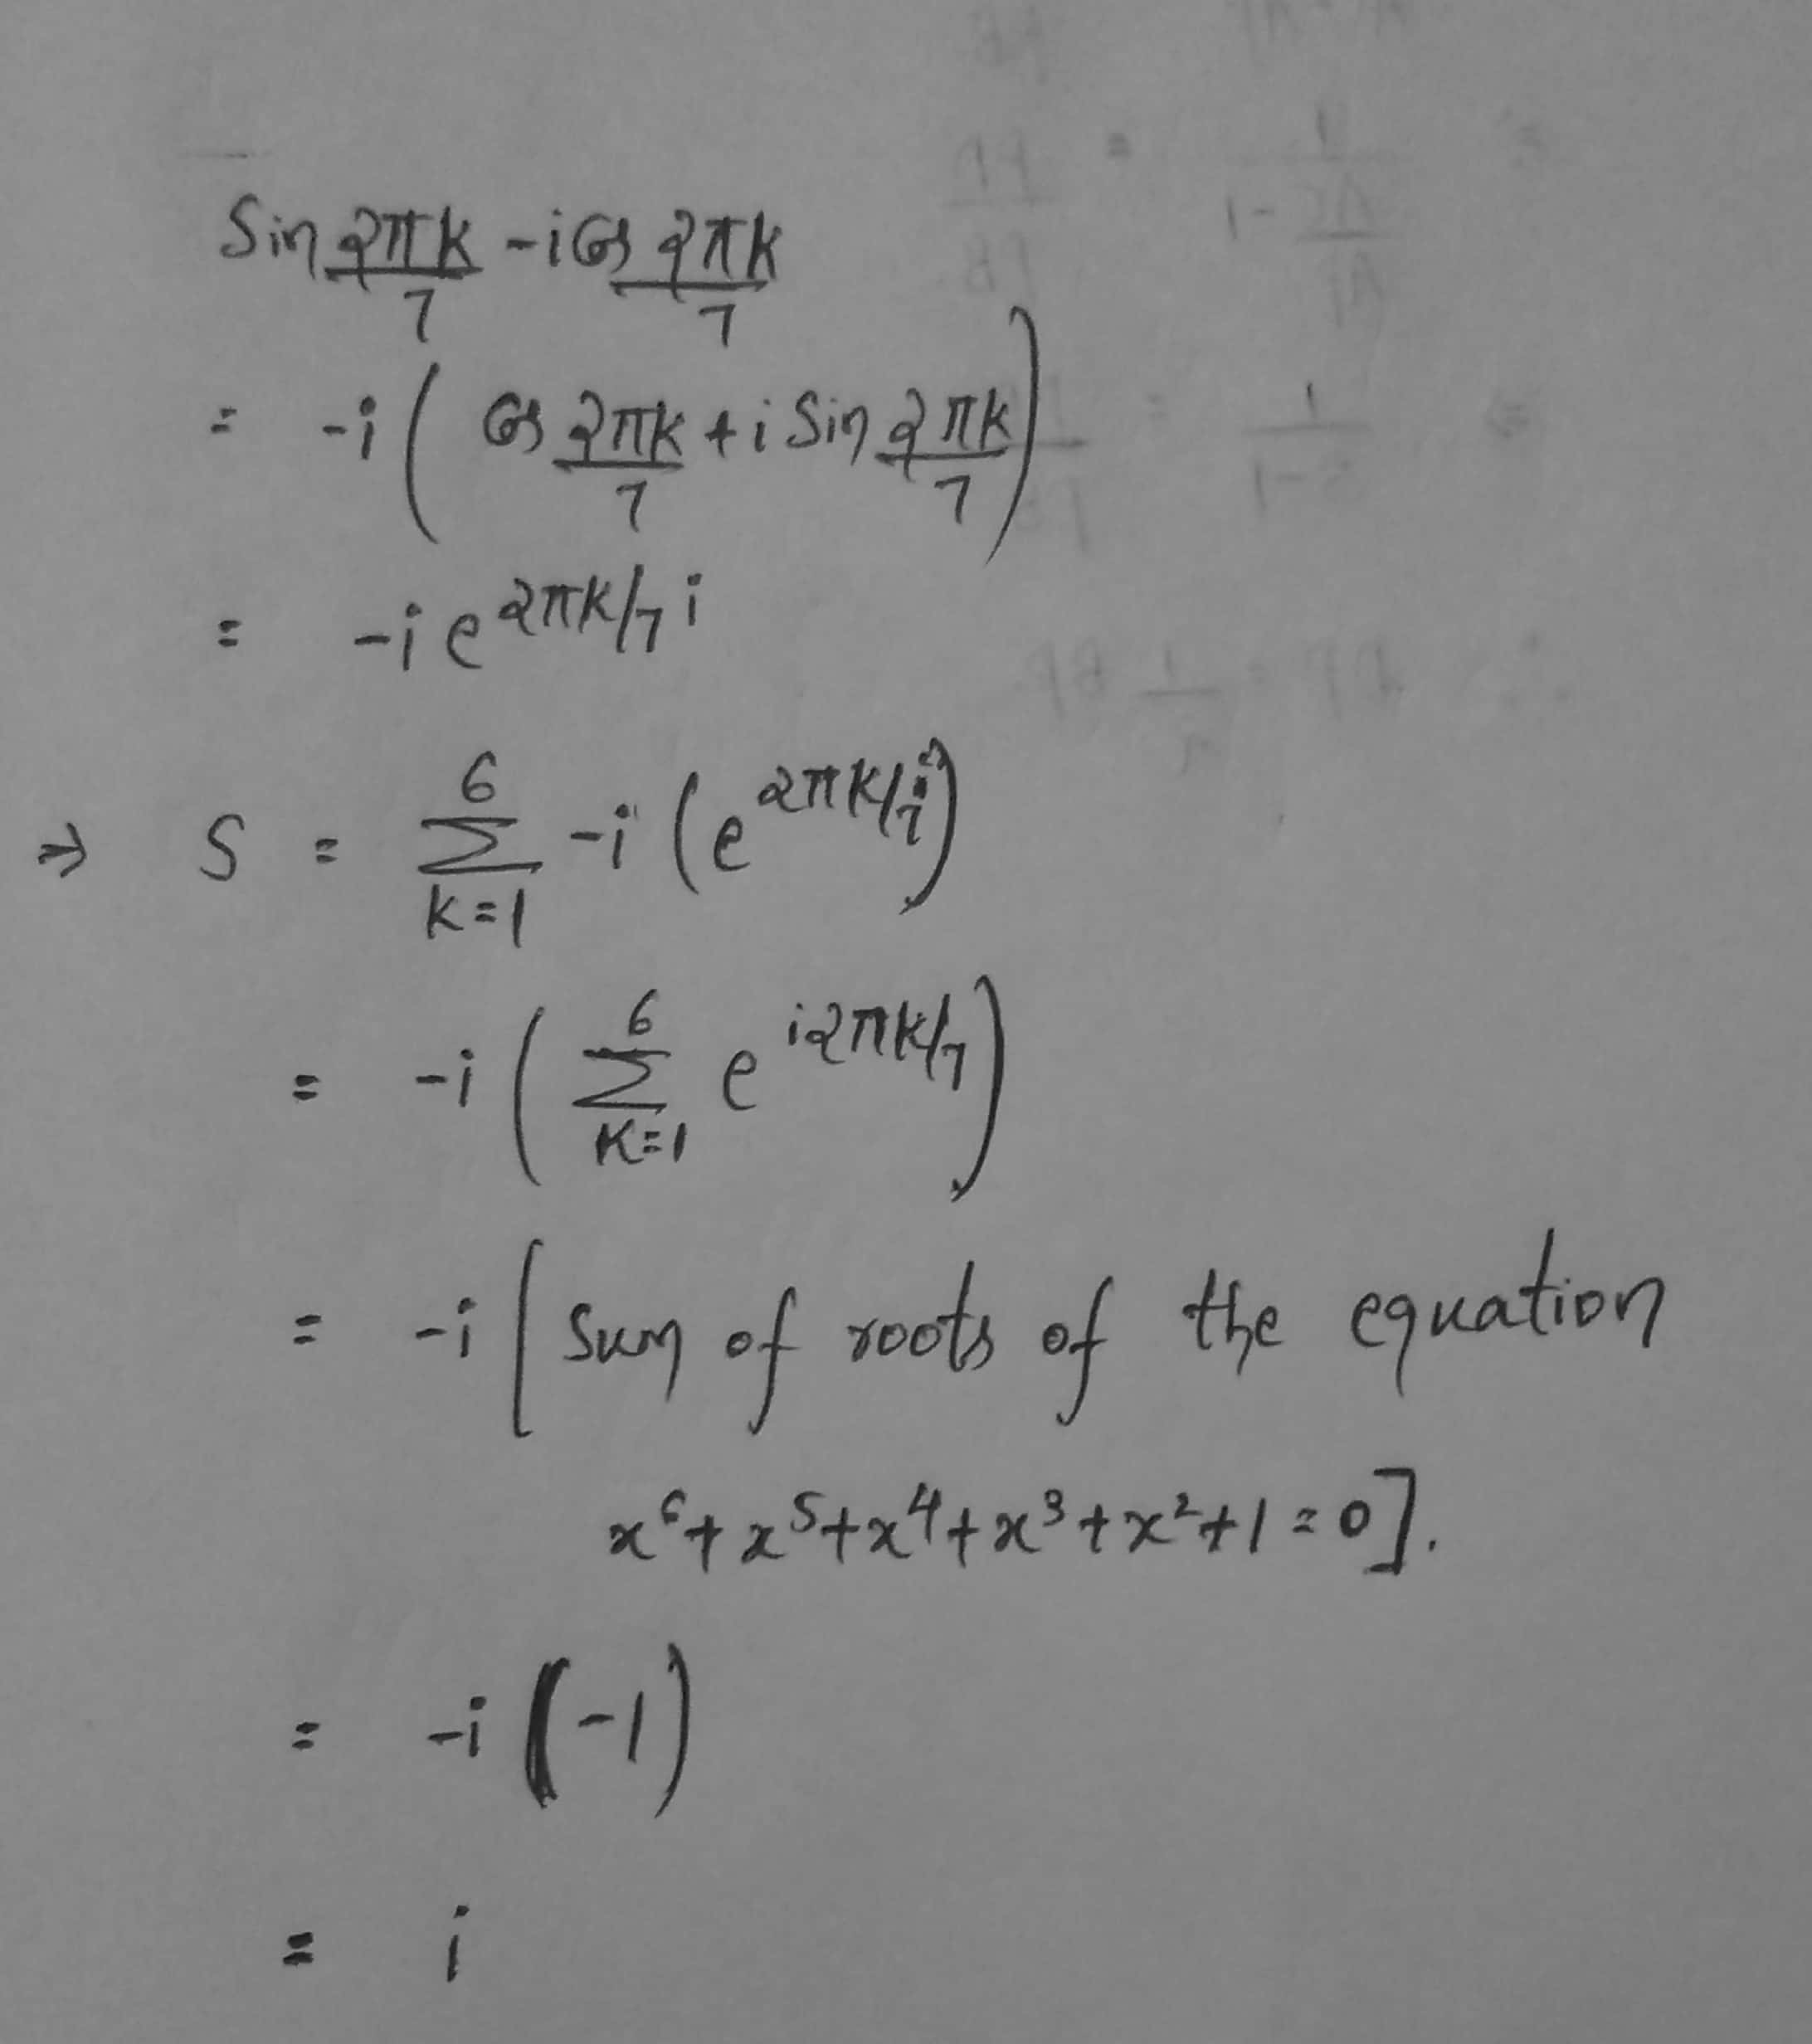 Sin 2πk/7 - i Cos 2πk/7
= -i ( Cos 2πk/7 + i Sin 2πk/7 )
= -i e^{2πk/7 i}
⇒ S = Σ_{k=1}^{6} -i (e^{2πk/7 i})
= -i ( Σ_{k=1}^{6} e^{i2πk/7} )
= -i [ Sum of roots of the equation
x⁶+x⁵+x⁴+x³+x²+1=0].
= -i (-1)
= i